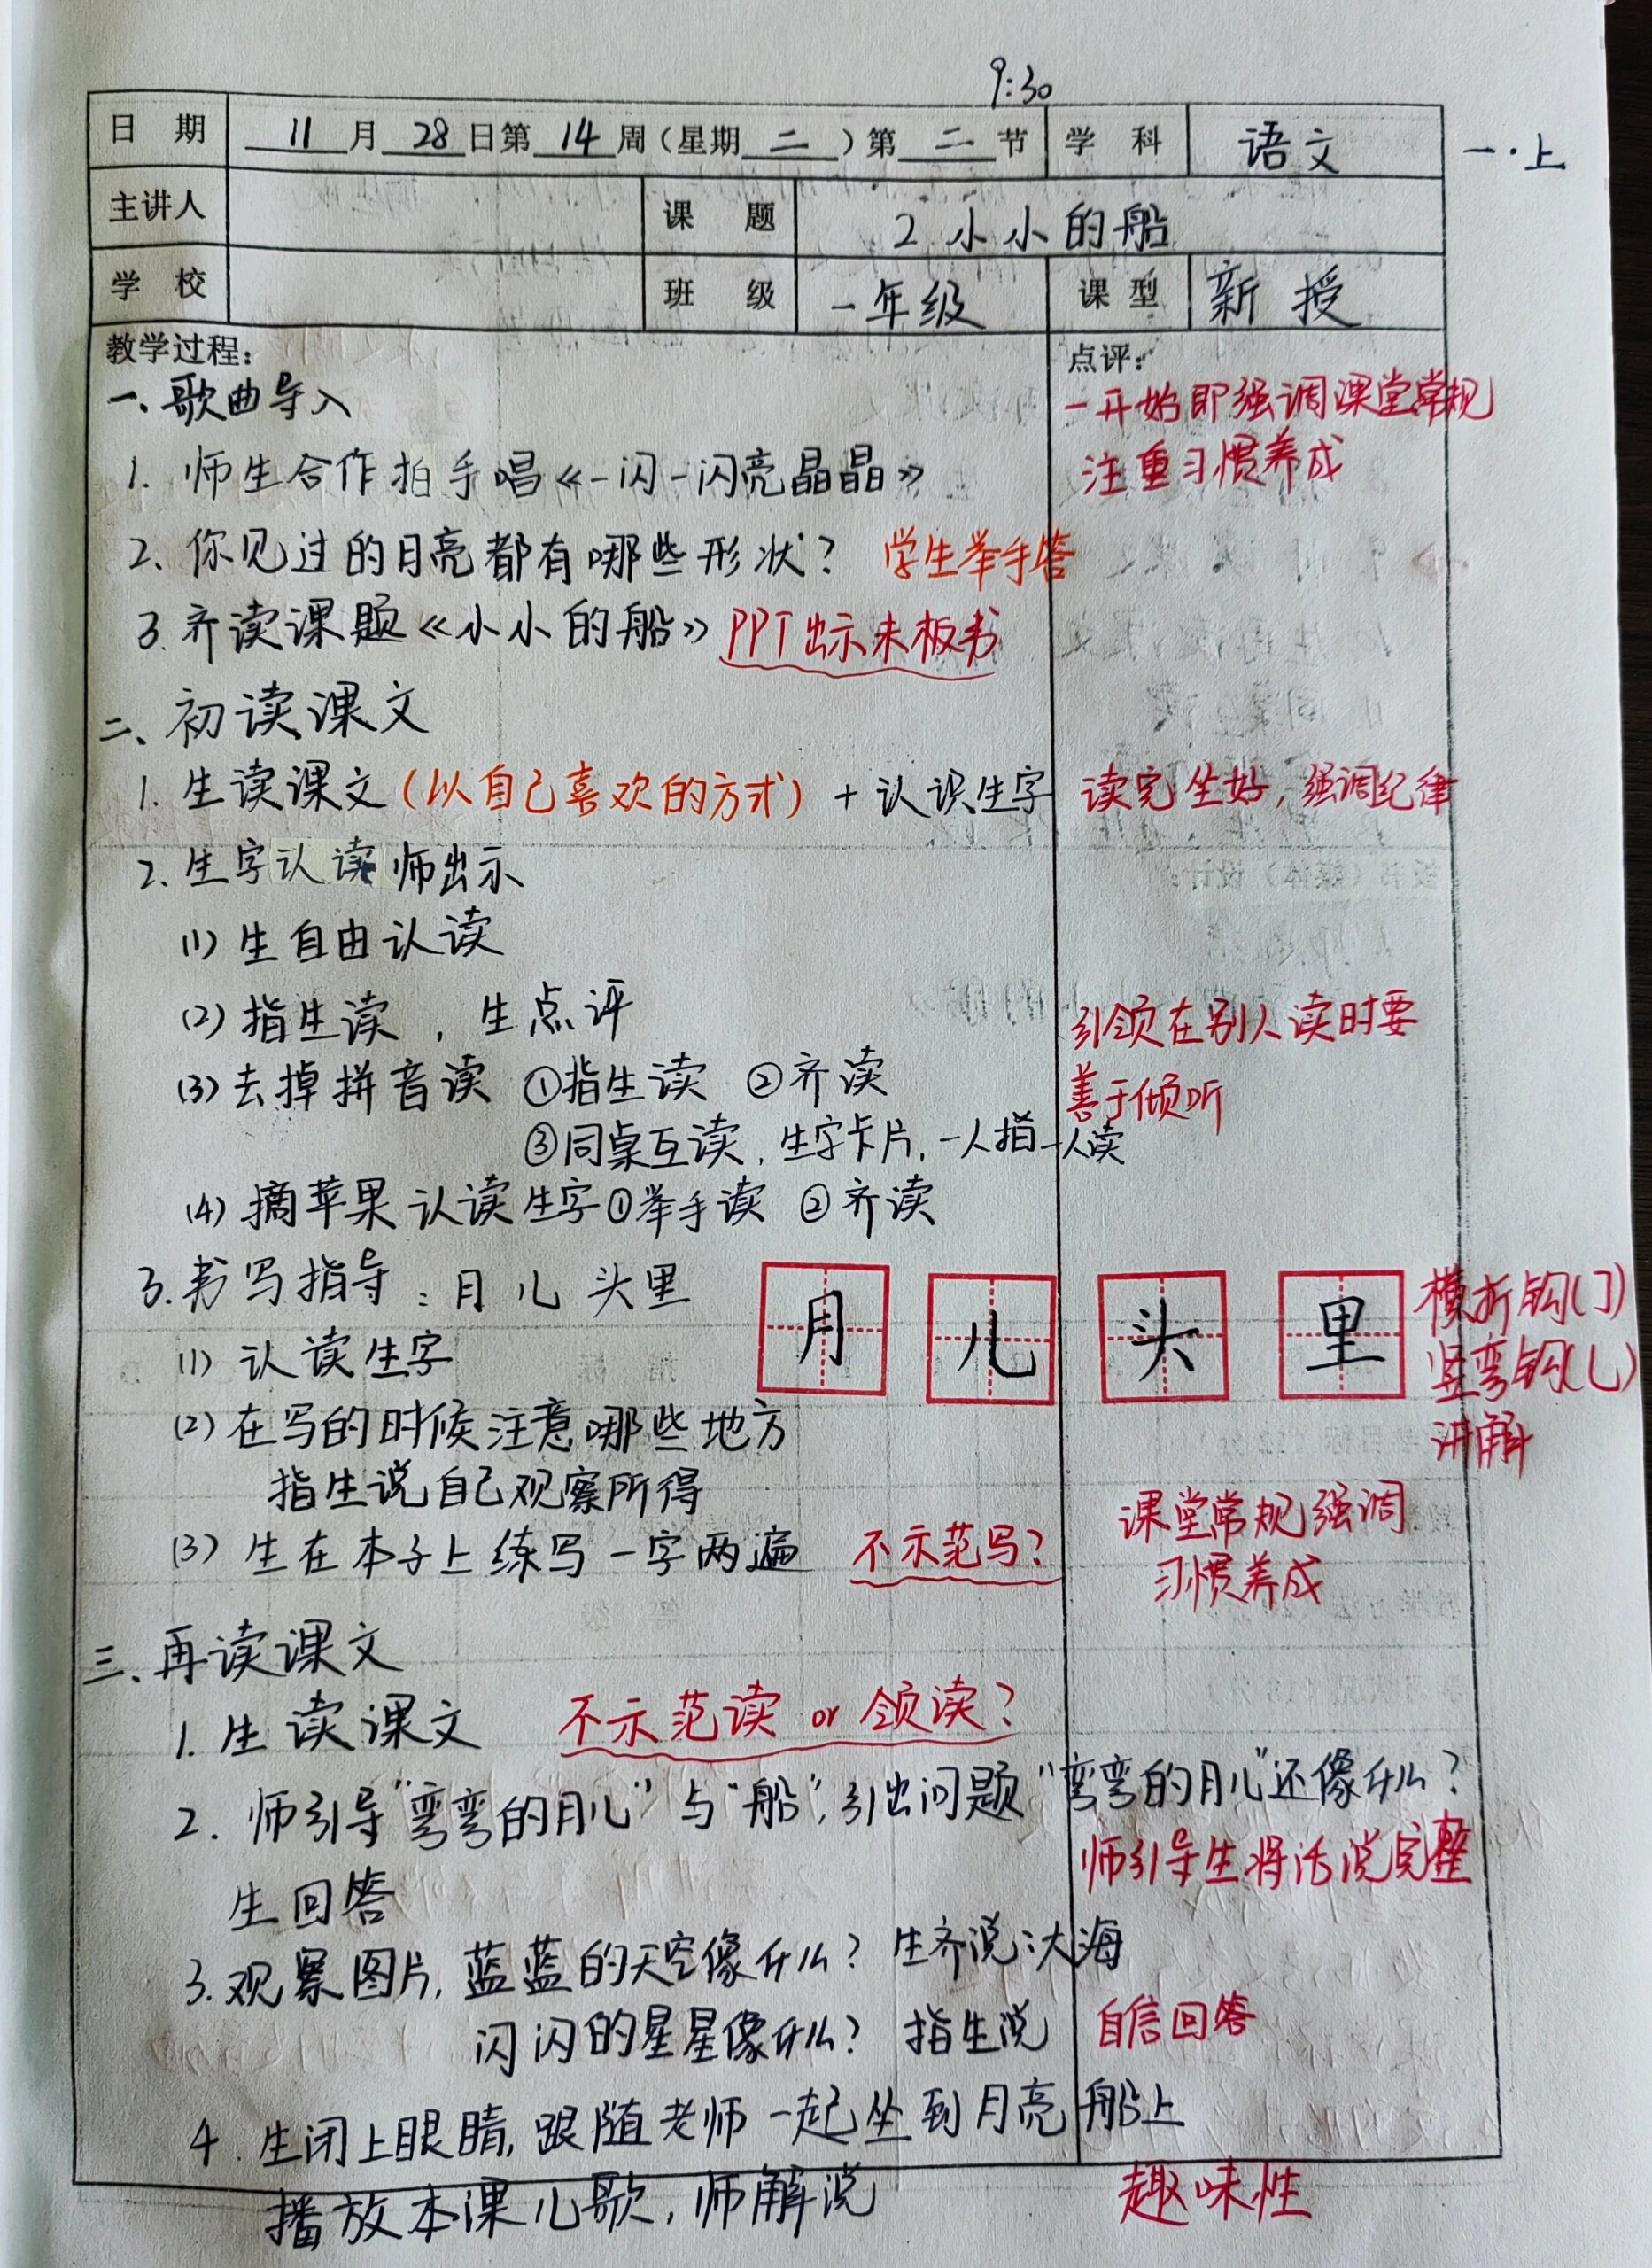 9:30
日 期 11月28日第14周（星期二）第二节 学 科 语文 一·上
主讲人 课 题 2 小小的船
学 校 班 级 一年级 课 型 新 授
教学过程： 点评：
一、歌曲导入 一开始即强调课堂常规
1. 师生合作拍手唱《一闪一闪亮晶晶》 注重习惯养成
2. 你见过的月亮都有哪些形状？ 学生举手答
3. 齐读课题《小小的船》 PPT出示未板书
二、初读课文
1. 生读课文（以自己喜欢的方式）+ 认识生字 读完坐好，强调纪律
2. 生字认读 师出示
(1) 生自由认读
(2) 指生读，生点评 引领在别人读时要
(3) 去掉拼音读 ①指生读 ②齐读 善于倾听
③同桌互读，生字卡片，一人指一人读
(4) 摘苹果认读生字①举手读 ②齐读
3. 书写指导：月 儿 头 里 月 儿 头 里 横折钩(㇆)
(1) 认读生字 竖弯钩(乚)
(2) 在写的时候注意哪些地方 讲解
指生说自己观察所得 课堂常规强调
(3) 生在本子上练写一字两遍 不示范写？ 习惯养成
三、再读课文
1. 生读课文 不示范读 or 领读？
2. 师引导"弯弯的月儿"与"船"，引出问题"弯弯的月儿"还像什么？
生回答 师引导生将话说完整
3. 观察图片，蓝蓝的天空像什么？生齐说：大海
闪闪的星星像什么？ 指生说 自信回答
4. 生闭上眼睛，跟随老师一起坐到月亮船上
播放本课儿歌，师解说 趣味性